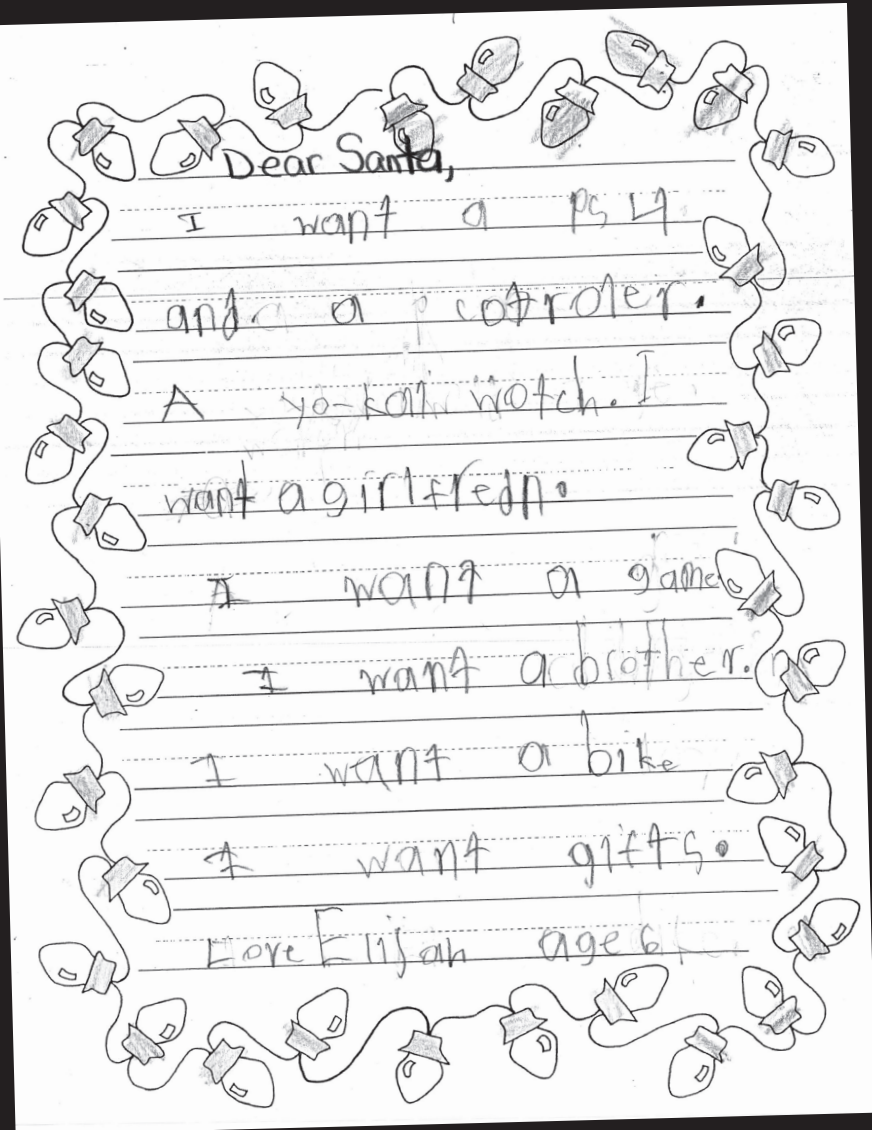 Dear Santa,
I want a PS4
and a cotroler.
A yo-kai watch. I
want a girlfredn.
I want a game
I want a brother.
I want a bike
I want gifts.
Love Elijah age 6